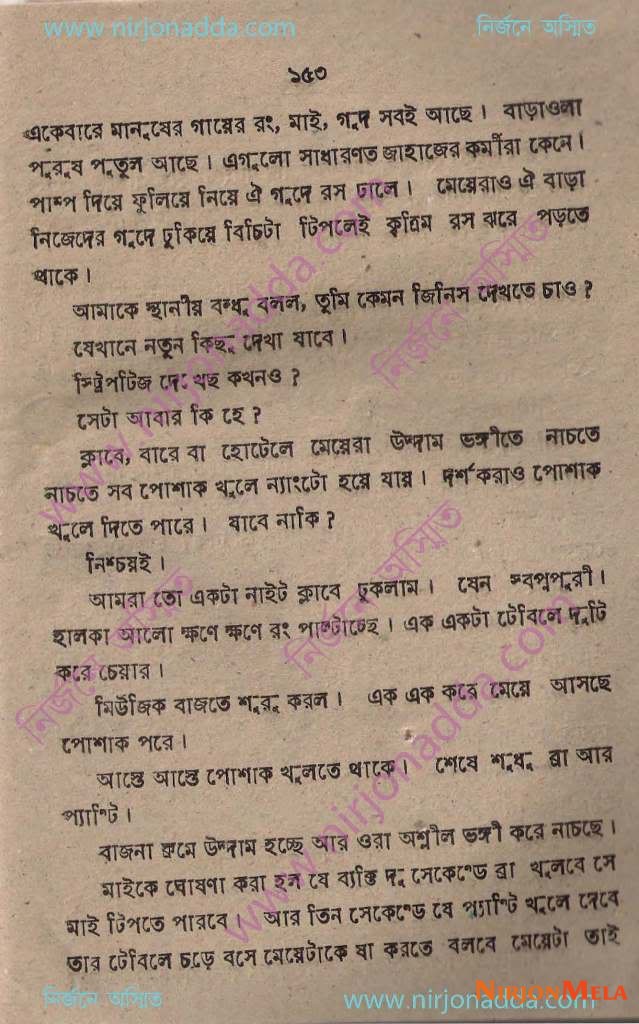 www.nirjonadda.com
নির্জনে অস্মিত
১৫৩
একেবারে মানুষের গায়ের রং, মাই, গুদ সবই আছে। বাড়াওলা
পুরুষ পুতুল আছে। এগুলো সাধারণত জাহাজের কর্মীরা কেনে।
পাম্প দিয়ে ফুলিয়ে নিয়ে ঐ গুদে রস ঢালে। মেয়েরাও ঐ বাড়া
নিজেদের গুদে ঢুকিয়ে বিচিটা টিপলেই কৃত্রিম রস ঝরে পড়তে
থাকে।
আমাকে স্থানীয় বন্ধু বলল, তুমি কেমন জিনিস দেখতে চাও?
যেখানে নতুন কিছু দেখা যাবে।
স্ট্রিপটিজ দেখেছ কখনও?
সেটা আবার কি হে?
ক্লাবে, বারে বা হোটেলে মেয়েরা উদ্দাম ভঙ্গীতে নাচতে
নাচতে সব পোশাক খুলে ন্যাংটো হয়ে যায়। দর্শকরাও পোশাক
খুলে দিতে পারে। যাবে নাকি?
নিশ্চয়ই।
আমরা তো একটা নাইট ক্লাবে ঢুকলাম। যেন স্বপ্নপুরী।
হালকা আলো ক্ষণে ক্ষণে রং পাল্টাচ্ছে। এক একটা টেবিলে দুটি
করে চেয়ার।
মিউজিক বাজতে শুরু করল। এক এক করে মেয়ে আসছে
পোশাক পরে।
আস্তে আস্তে পোশাক খুলতে থাকে। শেষে শুধু ব্রা আর
প্যান্টি।
বাজনা ক্রমে উদ্দাম হচ্ছে আর ওরা অশ্লীল ভঙ্গী করে নাচছে।
মাইকে ঘোষণা করা হল যে ব্যক্তি দু সেকেন্ডে ব্রা খুলবে সে
মাই টিপতে পারবে। আর তিন সেকেন্ডে যে প্যান্টি খুলে দেবে
তার টেবিলে চড়ে বসে মেয়েটাকে যা করতে বলবে মেয়েটা তাই
নির্জনে অস্মিত
www.nirjonadda.com
NIRJONMELA
www.nirjonadda.com
নির্জনে অস্মিত
নির্জনে অস্মিত
নির্জনে অস্মিত
www.nirjonadda.com